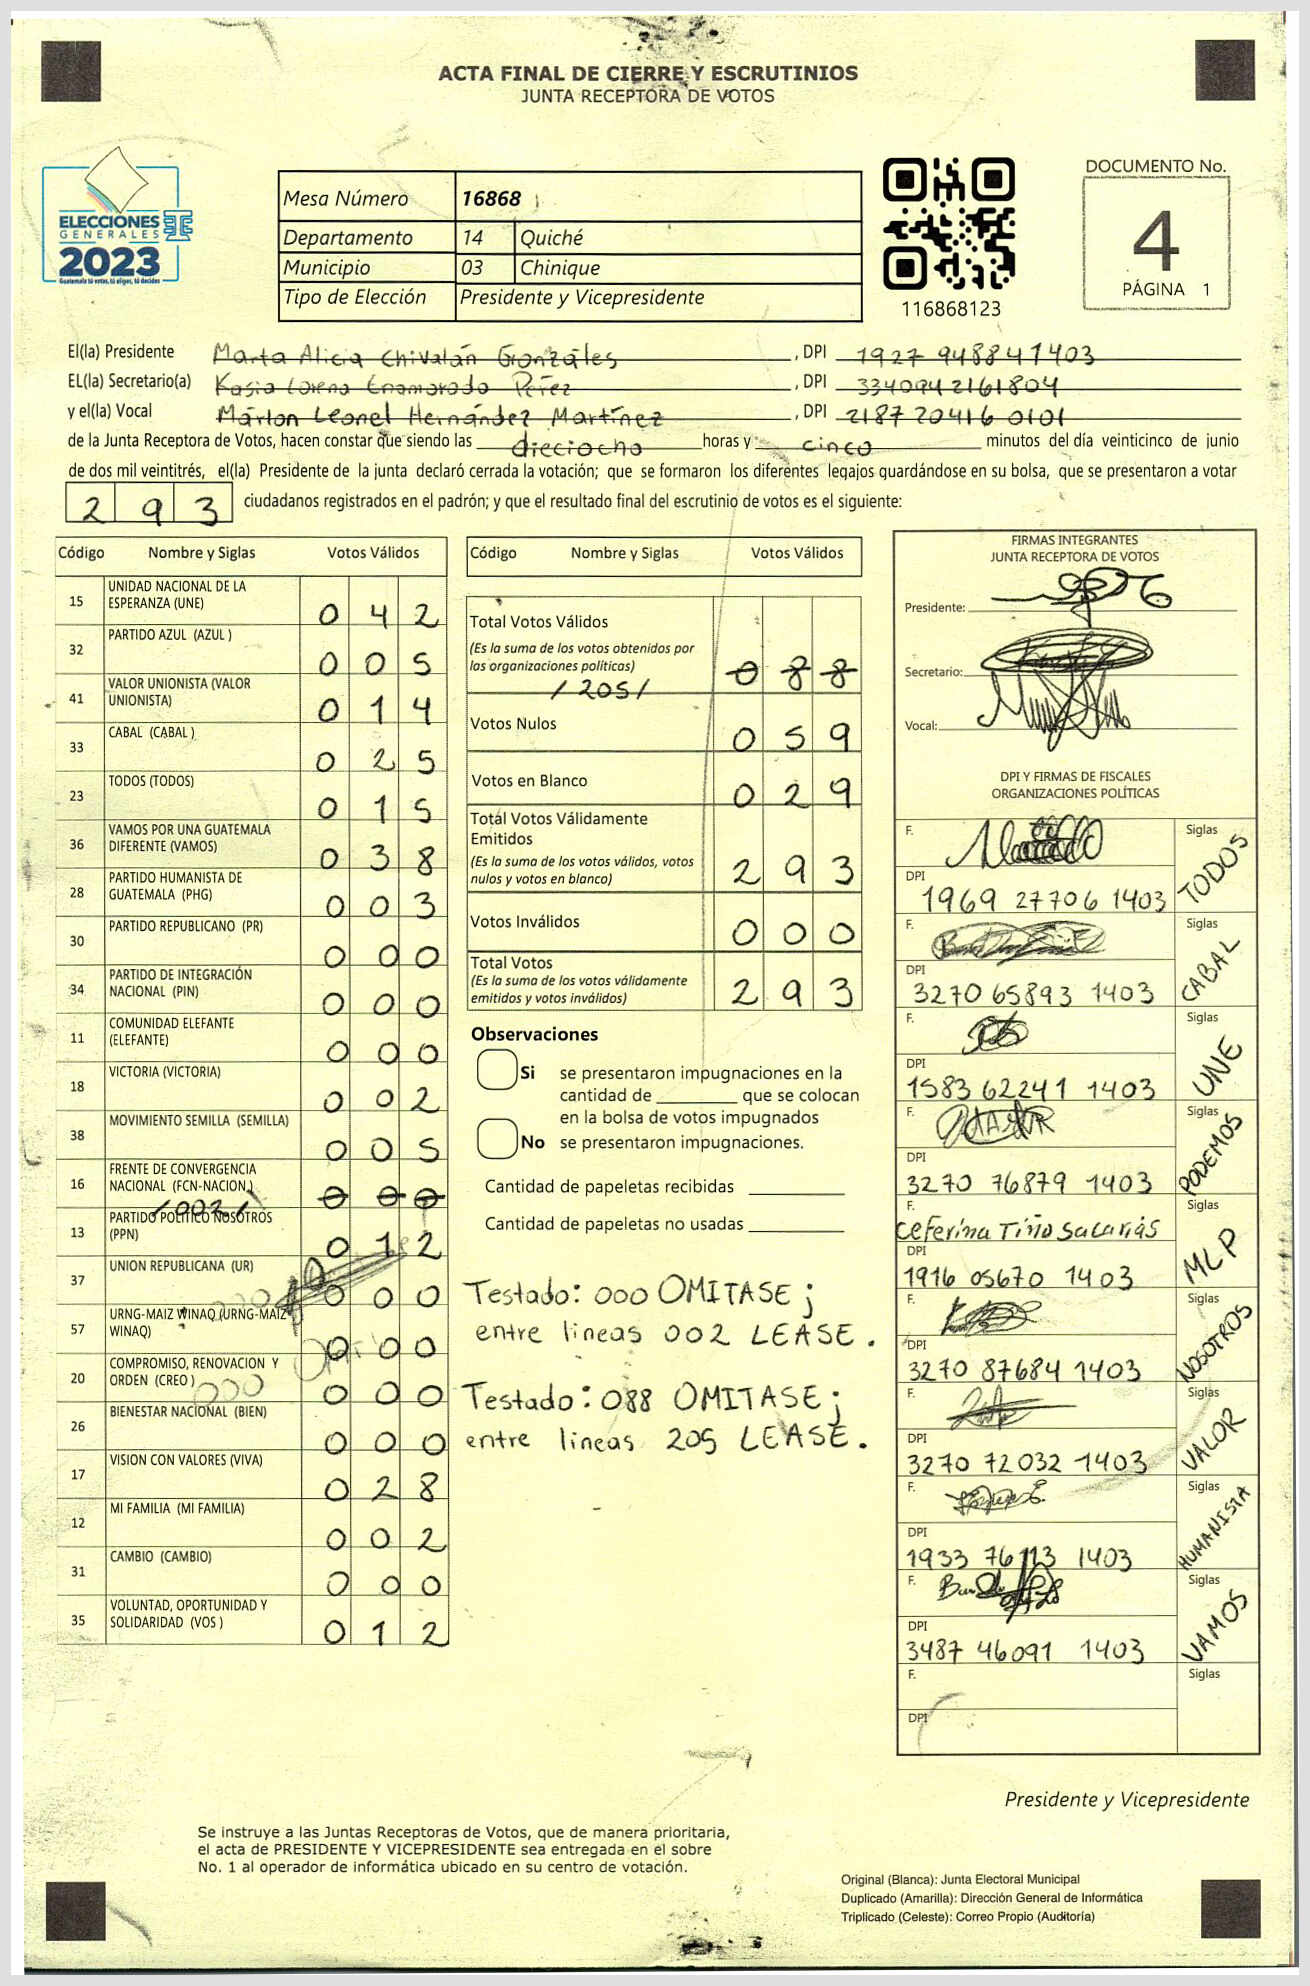 ACTA FINAL DE CIERRE Y ESCRUTINIOS
JUNTA RECEPTORA DE VOTOS
ELECCIONES
GENERALES
2023
Guatemala tú votas, tú eliges, tú decides
Mesa Número 16868
Departamento 14 Quiché
Municipio 03 Chinique
Tipo de Elección Presidente y Vicepresidente
116868123
DOCUMENTO No.
4
PÁGINA 1
El(la) Presidente Marta Alicia Chivalán Gronzáles , DPI 1927 94884 1403
EL(la) Secretario(a) Kasia Lorena Enamorado Pérez , DPI 33409 42161804
y el(la) Vocal Márlon Leonel Hernández Martínez , DPI 2187 20416 0101
de la Junta Receptora de Votos, hacen constar que siendo las dieciocho horas y cinco minutos del día veinticinco de junio
de dos mil veintitrés, el(la) Presidente de la junta declaró cerrada la votación; que se formaron los diferentes legajos guardándose en su bolsa, que se presentaron a votar
2 9 3 ciudadanos registrados en el padrón; y que el resultado final del escrutinio de votos es el siguiente:
Código Nombre y Siglas Votos Válidos
15 UNIDAD NACIONAL DE LA ESPERANZA (UNE) 0 4 2
32 PARTIDO AZUL (AZUL ) 0 0 5
41 VALOR UNIONISTA (VALOR UNIONISTA) 0 1 4
33 CABAL (CABAL ) 0 2 5
23 TODOS (TODOS) 0 1 5
36 VAMOS POR UNA GUATEMALA DIFERENTE (VAMOS) 0 3 8
28 PARTIDO HUMANISTA DE GUATEMALA (PHG) 0 0 3
30 PARTIDO REPUBLICANO (PR) 0 0 0
34 PARTIDO DE INTEGRACIÓN NACIONAL (PIN) 0 0 0
11 COMUNIDAD ELEFANTE (ELEFANTE) 0 0 0
18 VICTORIA (VICTORIA) 0 0 2
38 MOVIMIENTO SEMILLA (SEMILLA) 0 0 5
16 FRENTE DE CONVERGENCIA NACIONAL (FCN-NACION) 0 0 0
/002/
13 PARTIDO POLITICO NOSOTROS (PPN) 0 1 2
37 UNION REPUBLICANA (UR) 0 0 0
57 URNG-MAIZ WINAQ (URNG-MAIZ WINAQ) 0 0 0
20 COMPROMISO, RENOVACION Y ORDEN (CREO ) 0 0 0
26 BIENESTAR NACIONAL (BIEN) 0 0 0
17 VISION CON VALORES (VIVA) 0 2 8
12 MI FAMILIA (MI FAMILIA) 0 0 2
31 CAMBIO (CAMBIO) 0 0 0
35 VOLUNTAD, OPORTUNIDAD Y SOLIDARIDAD (VOS ) 0 1 2
Código Nombre y Siglas Votos Válidos
Total Votos Válidos
(Es la suma de los votos obtenidos por
las organizaciones políticas) 0 8 8
/205/
Votos Nulos 0 5 9
Votos en Blanco 0 2 9
Total Votos Válidamente
Emitidos
(Es la suma de los votos válidos, votos
nulos y votos en blanco) 2 9 3
Votos Inválidos 0 0 0
Total Votos
(Es la suma de los votos válidamente
emitidos y votos inválidos) 2 9 3
Observaciones
Si se presentaron impugnaciones en la
cantidad de ________ que se colocan
en la bolsa de votos impugnados
No se presentaron impugnaciones.
Cantidad de papeletas recibidas
Cantidad de papeletas no usadas
Testado: 000 OMITASE ;
entre líneas 002 LEASE .
Testado: 088 OMITASE ;
entre líneas 205 LEASE .
FIRMAS INTEGRANTES
JUNTA RECEPTORA DE VOTOS
Presidente:
Secretario:
Vocal:
DPI Y FIRMAS DE FISCALES
ORGANIZACIONES POLÍTICAS
F. Siglas TODOS
DPI 1969 27706 1403
F. Siglas CABAL
DPI 3270 65893 1403
F. Siglas UNE
DPI 1583 62241 1403
F. Siglas PODEMOS
DPI 3270 76879 1403
F. Ceferina Tiño Salarias Siglas MLP
DPI 1916 05670 1403
F. Siglas NOSOTROS
DPI 3270 87684 1403
F. Siglas VALOR
DPI 3270 72032 1403
F. Siglas HUMANISTA
DPI 1933 76113 1403
F. Siglas VAMOS
DPI 3487 46091 1403
F. Siglas
DPI
Presidente y Vicepresidente
Se instruye a las Juntas Receptoras de Votos, que de manera prioritaria,
el acta de PRESIDENTE Y VICEPRESIDENTE sea entregada en el sobre
No. 1 al operador de informática ubicado en su centro de votación.
Original (Blanca): Junta Electoral Municipal
Duplicado (Amarilla): Dirección General de Informática
Triplicado (Celeste): Correo Propio (Auditoría)